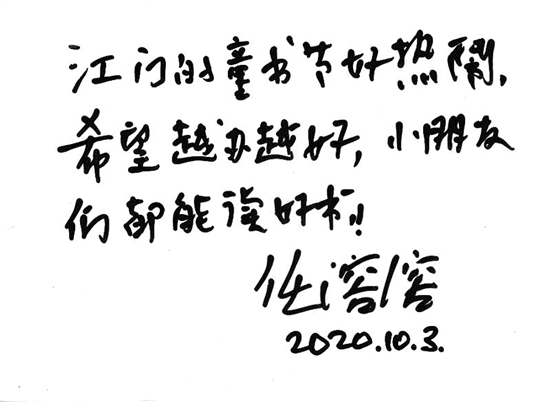 江门的童书节好热闹，
希望越办越好，小朋友
们都能读好书！
任溶溶
2020.10.3.